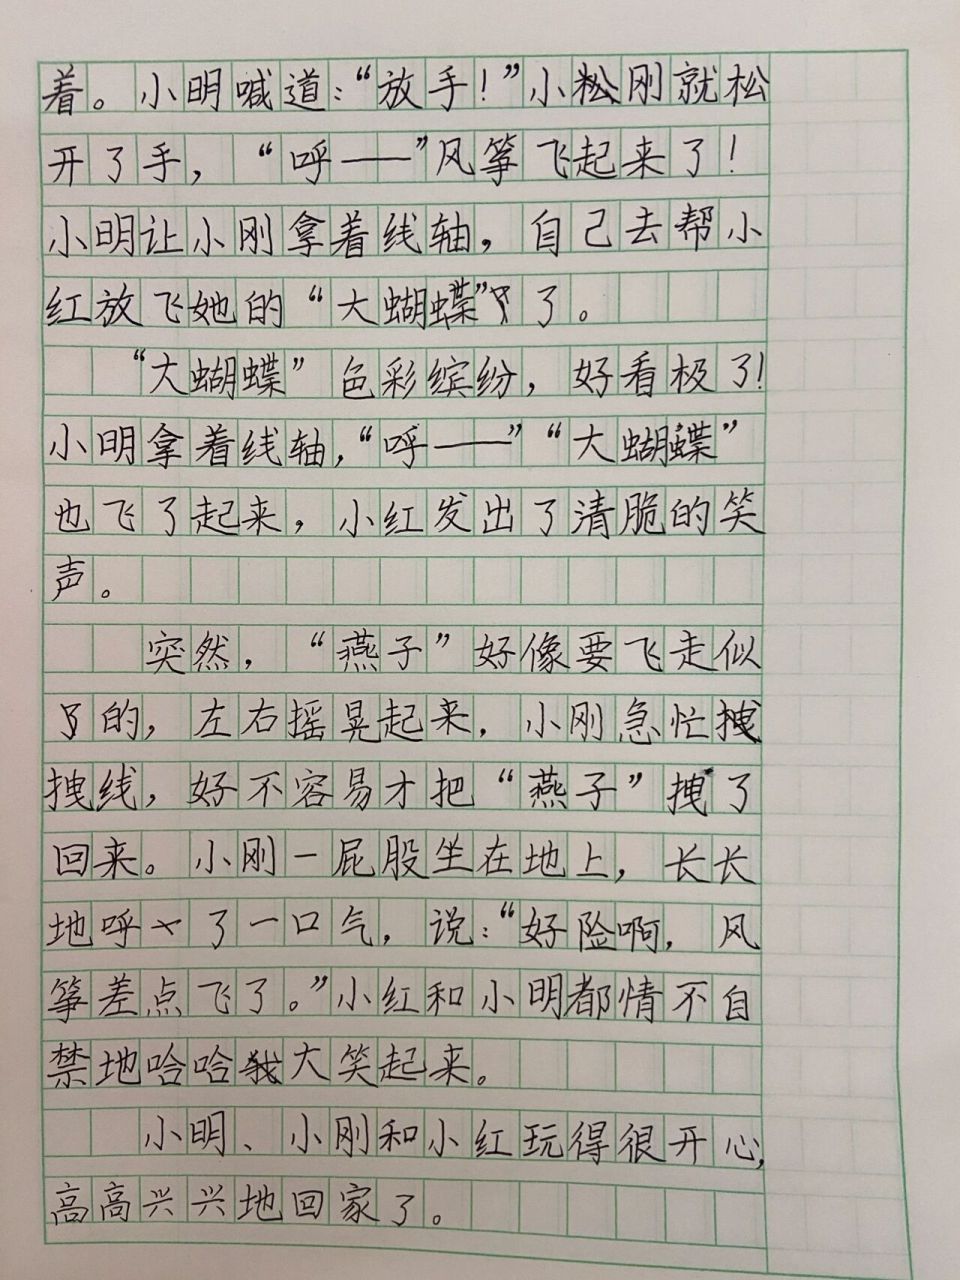 着。小明喊道：“放手！”小刚就松
开了手，“呼——”风筝飞起来了！
小明让小刚拿着线轴，自己去帮小
红放飞她的“大蝴蝶”了。
“大蝴蝶”色彩缤纷，好看极了！
小明拿着线轴，“呼——”“大蝴蝶”
也飞了起来，小红发出了清脆的笑
声。
突然，“燕子”好像要飞走似
的，左右摇晃起来，小刚急忙拽
拽线，好不容易才把“燕子”拽了
回来。小刚一屁股坐在地上，长长
地呼了一口气，说：“好险啊，风
筝差点飞了。”小红和小明都情不自
禁地哈哈大笑起来。
小明、小刚和小红玩得很开心，
高高兴兴地回家了。